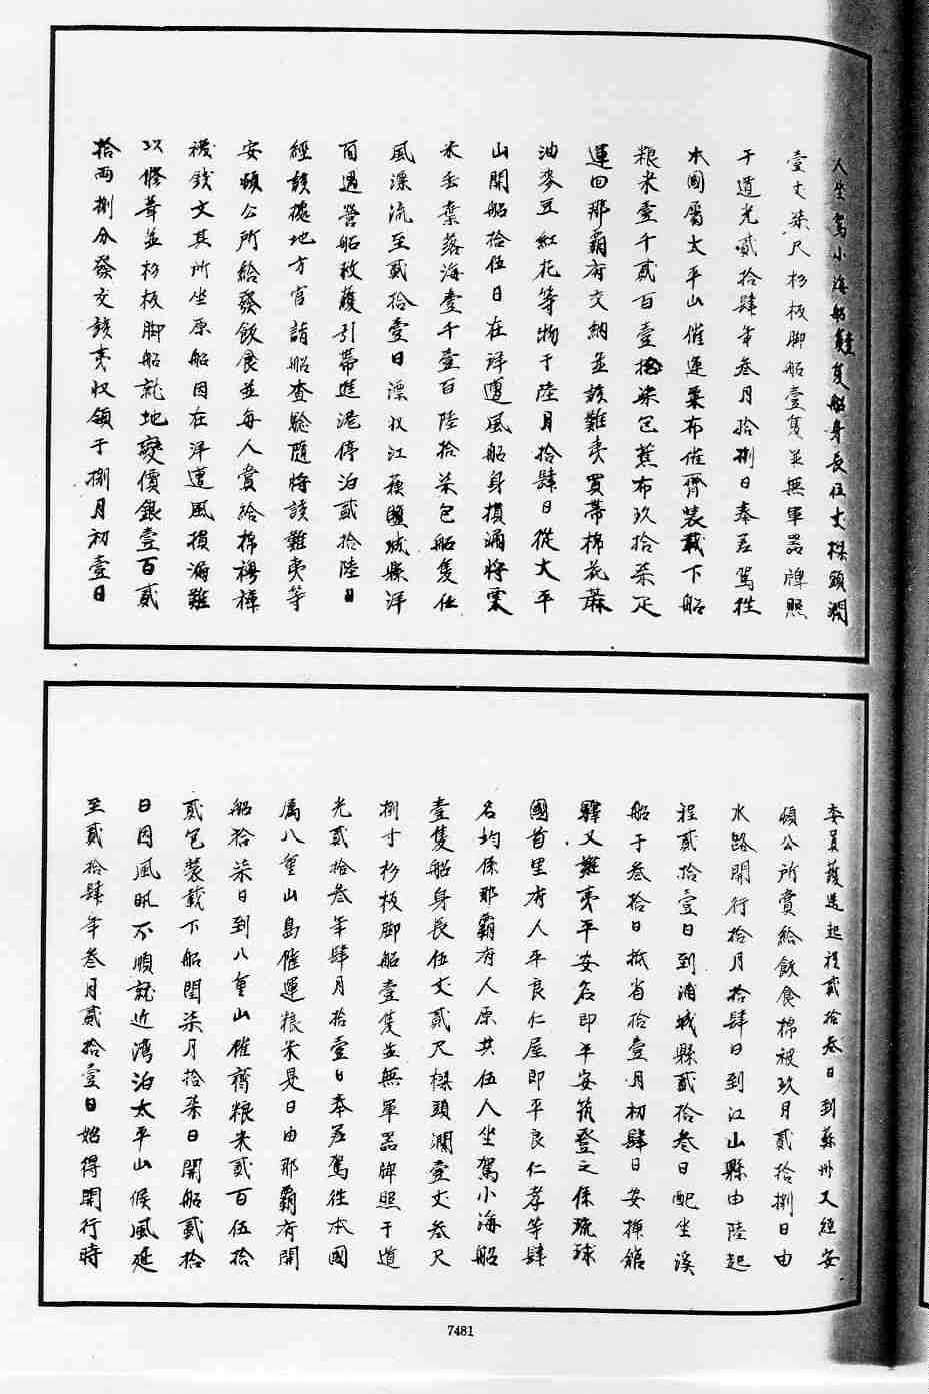 人坐駕小海船壹隻船身長伍丈樑頭濶
壹丈柒尺杉板脚船壹隻並無軍器牌照
于道光貳拾肆年叁月拾捌日奉差駕往
本國屬太平山催運粟布催齊裝載下船
粮米壹千貳百壹拾柒包蕉布玖拾柒疋
運回那霸府交納並該難夷買帶棉花蔴
油麥豆紅花等物于陸月拾肆日從太平
山開船拾伍日在洋遭風船身損漏將粟
米丟棄落海壹千壹百陸拾柒包船隻任
風漂流至貳拾壹日漂收江蘇鹽城縣洋
面遇營船救護引帶進港停泊貳拾陸日
經該處地方官詣船查驗隨將該難夷等
安頓公所給發飯食並每人賞給棉褥褲
襪錢文其所坐原船因在洋遭風損漏難
以修葺並杉板脚船就地變價銀壹百貳
拾兩捌分發交該夷收領于捌月初壹日
委員護送起程貳拾叁日到蘇州又經安
頓公所賞給飲食棉被玖月貳拾捌日由
水路開行拾月拾肆日到江山縣由陸起
程貳拾壹日到浦城縣貳拾叁日配坐溪
船于叁拾日抵省拾壹月初肆日安揷舘
驛又難夷平安名即平安筑登之係琉球
國首里府人平良仁屋即平良仁孝等肆
名均係那霸府人原共伍人坐駕小海船
壹隻船身長伍丈貳尺樑頭濶壹丈叁尺
捌寸杉板脚船壹隻並無軍器牌照于道
光貳拾叁年肆月拾壹日奉差駕往本國
属八重山島催運粮米是日由那霸府開
船拾柒日到八重山催齊粮米貳百伍拾
貳包裝載下船閏柒月拾柒日開船貳拾
日因風帆不順就近湾泊太平山候風延
至貳拾肆年叁月貳拾壹日始得開行時
7481